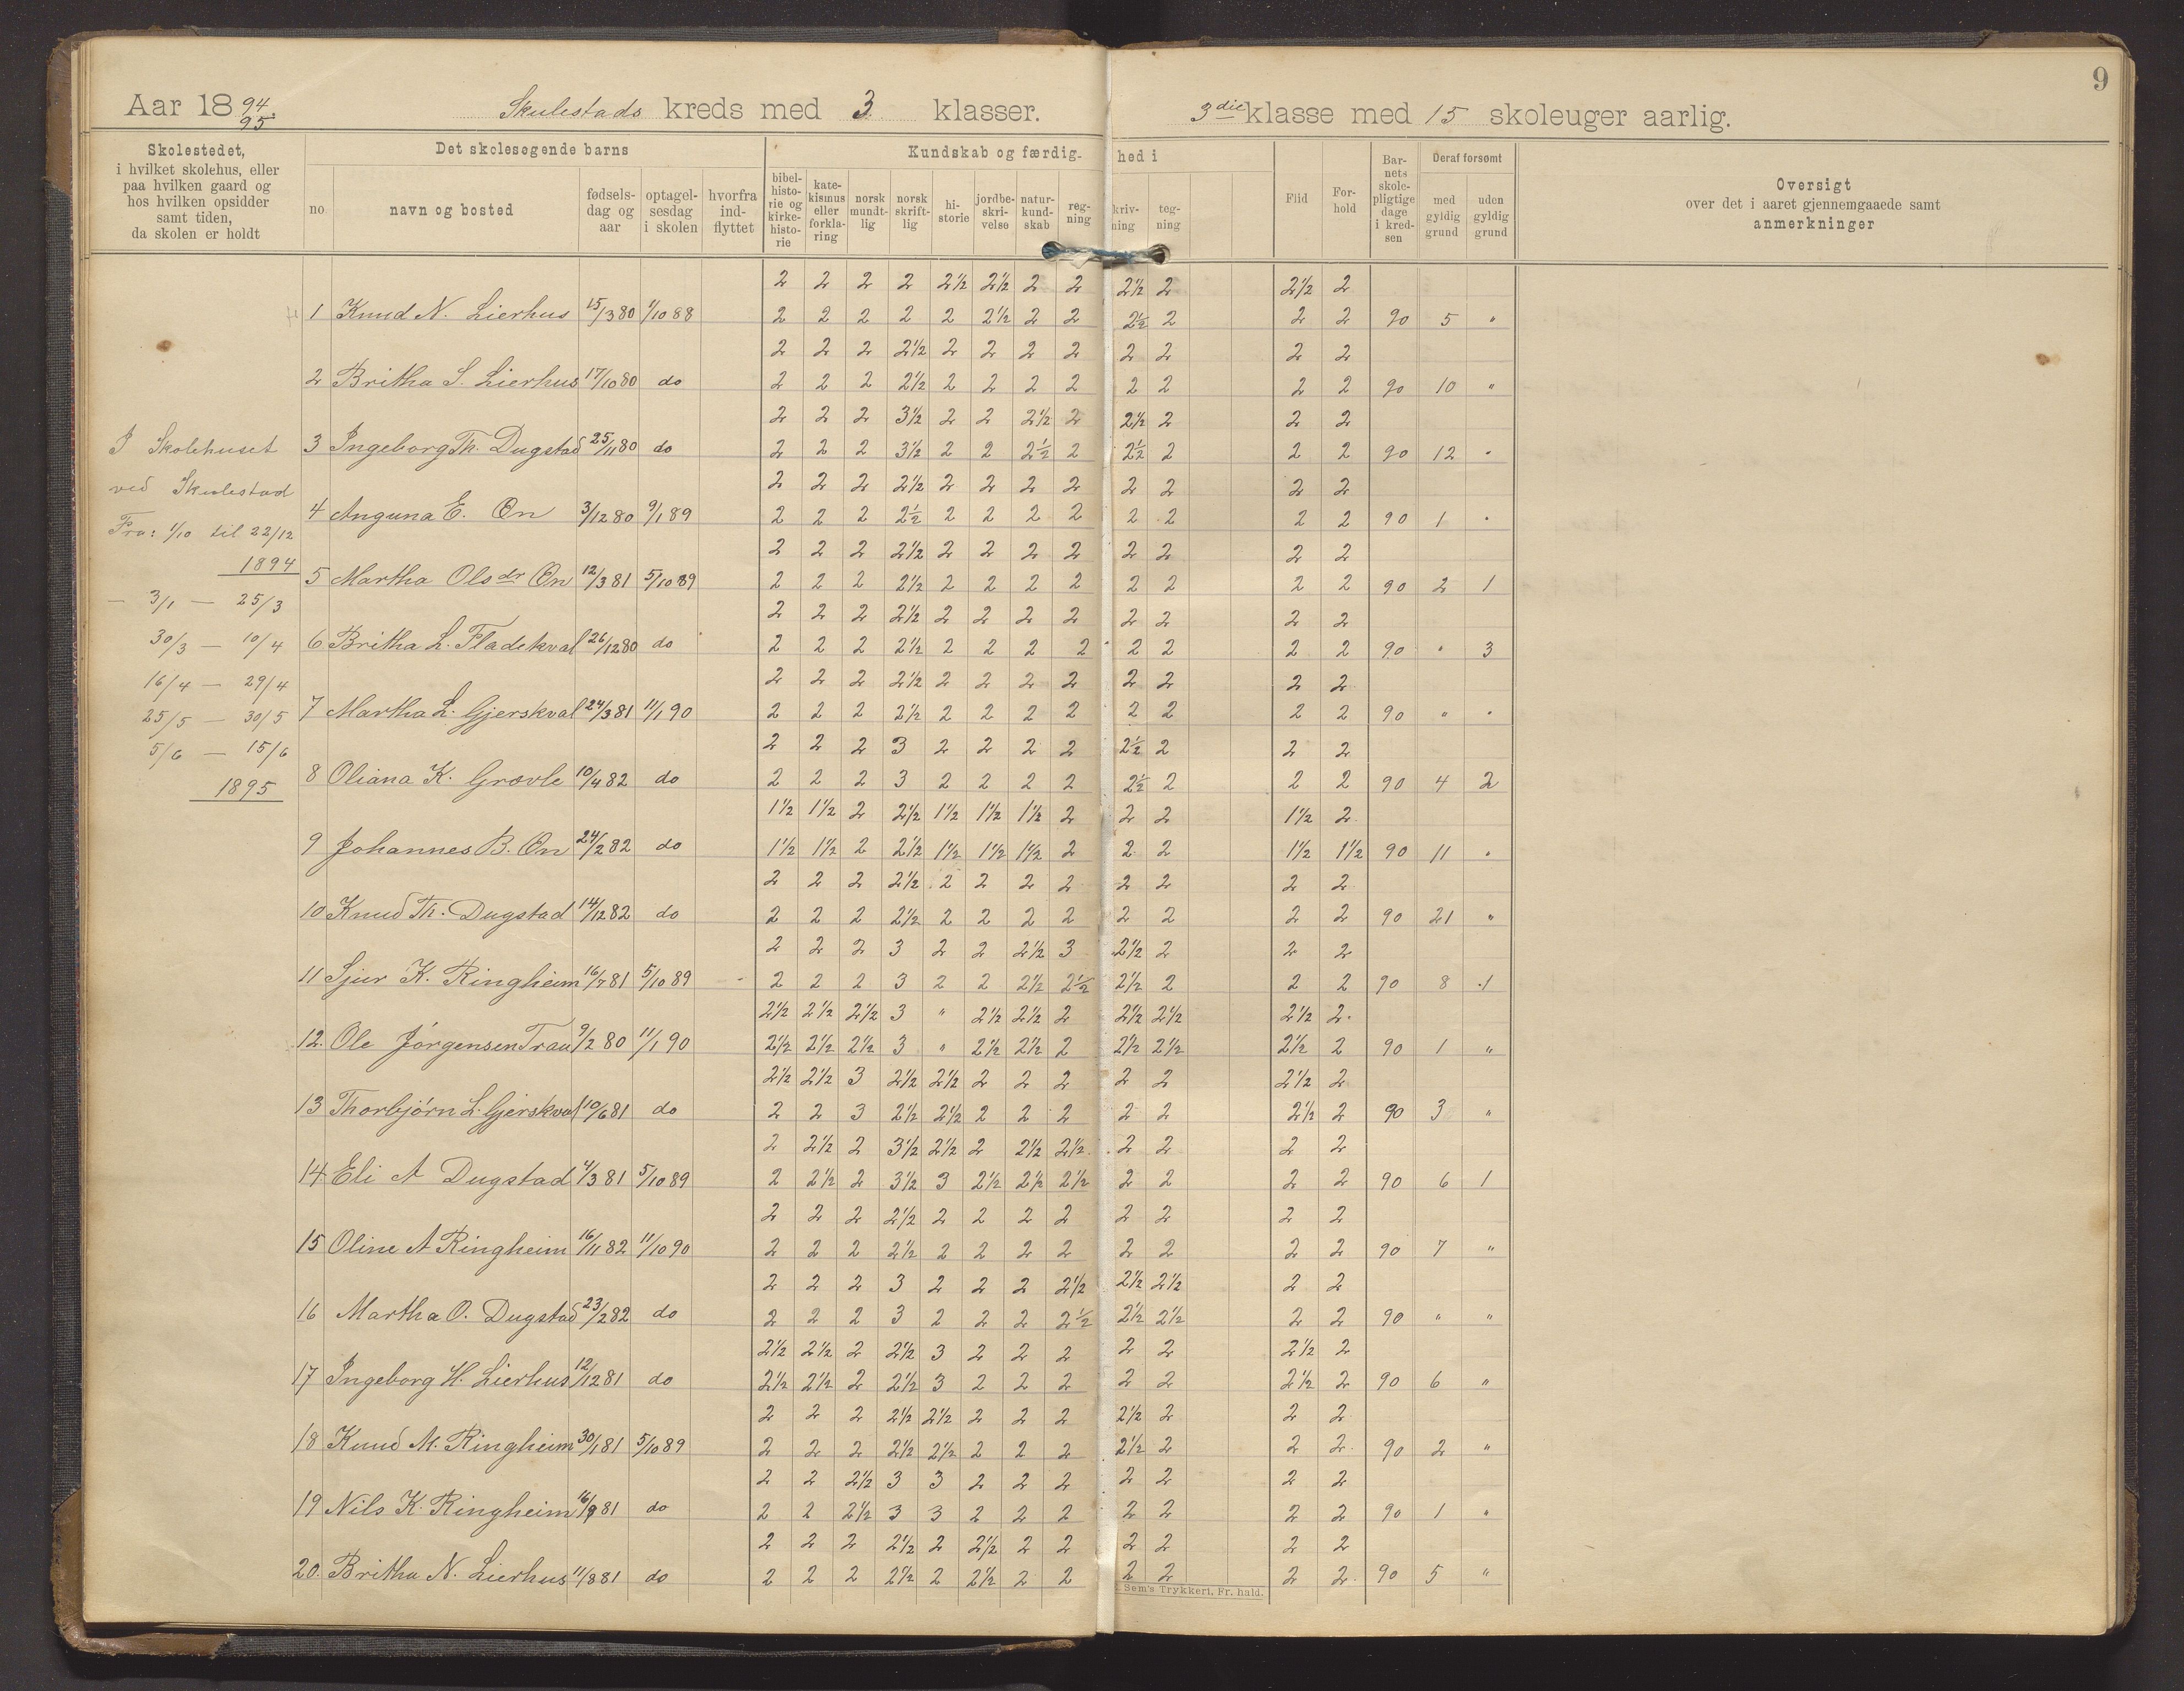 9
Aar 18 94/95. Skulestads kreds med 3 klasser. 3die klasse med 15 skoleuger aarlig.
Skolestedet,
i hvilket skolehus, eller
paa hvilken gaard og
hos hvilken opsidder
samt tiden,
da skolen er holdt
Det skolesøgende barns
no
navn og bosted
fødsels-
dag og
aar
optagel-
sesdag
i skolen
hvorfra
ind-
flyttet
Kundskab og færdig- hed i
bibel-
histo-
rie og
kirke-
histo-
rie
kate-
kismus
eller
forkla-
ring
norsk
mundt-
lig
norsk
skrift-
lig
hi-
storie
jordbe-
skri-
velse
natur-
kund-
skab
reg-
ning
kriv-
ning
teg-
ning
Flid
For-
hold
Bar-
nets
skole-
pligtige
dage
i kred-
sen
Deraf forsømt
med
gyldig
grund
uden
gyldig
grund
Oversigt
over det i aaret gjennemgaaede samt
anmerkninger
I Skolehuset
ved Skulestad
Fra: 1/10 til 22/12
1894
— 3/1 — 25/3
30/3 — 10/4
16/4 — 29/4
25/5 — 30/5
5/6 — 15/6
1895
2 2 2 2 2½ 2½ 2 2 2½ 2 2½ 2
1 Knud N. Lierhus 15/3 80 1/10 88 2 2 2 2 2 2½ 2 2 2½ 2 2 2 90 5 "
2 2 2 2½ 2 2 2 2 2 2 2 2
2 Britha S. Lierhus 17/10 80 do 2 2 2 2½ 2 2 2 2 2 2 2 2 90 10 "
2 2 2 3½ 2 2 2½ 2 2½ 2 2 2
3 Ingeborg Th. Dugstad 25/11 80 do 2 2 2 3½ 2 2 2½ 2 2½ 2 2 2 90 12 "
2 2 2 2½ 2 2 2 2 2 2 2 2
4 Anguna E. Øn 3/12 80 9/1 89 2 2 2 2½ 2 2 2 2 2 2 2 2 90 1 "
2 2 2 2½ 2 2 2 2 2 2 2 2
5 Martha Olsdr Øn 12/3 81 5/10 89 2 2 2 2½ 2 2 2 2 2 2 2 2 90 2 1
2 2 2 2½ 2 2 2 2 2 2 2 2
6 Britha L. Fladekval 26/12 80 do 2 2 2 2½ 2 2 2 2 2 2 2 2 90 " 3
2 2 2 2½ 2 2 2 2 2 2 2 2
7 Martha L. Gjerskval 24/3 81 11/1 90 2 2 2 2½ 2 2 2 2 2 2 2 2 90 " "
2 2 2 3 2 2 2 2 2½ 2 2 2
8 Oliana K. Grøvle 10/4 82 do 2 2 2 3 2 2 2 2 2½ 2 2 2 90 4 2
1½ 1½ 2 2½ 1½ 1½ 1½ 2 2 2 1½ 2
9 Johannes B. Øn 24/2 82 do 1½ 1½ 2 2½ 1½ 1½ 1½ 2 2 2 1½ 1½ 90 11 "
2 2 2 2½ 2 2 2 2 2 2 2 2
10 Knud Th. Dugstad 14/12 82 do 2 2 2 2½ 2 2 2 2 2 2 2 2 90 21 "
2 2 2 3 2 2 2½ 3 2½ 2 2 2
11 Sjur K. Ringheim 16/7 81 5/10 89 2 2 2 3 2 2 2½ 2½ 2½ 2 2 2 90 8 1
2½ 2½ 2½ 3 " 2½ 2½ 2 2½ 2½ 2½ 2
12. Ole Jørgensen Trau 9/2 80 11/1 90 2½ 2½ 2½ 3 " 2½ 2½ 2 2½ 2½ 2½ 2 90 1 "
2½ 2½ 3 2½ 2½ 2 2 2 2 2 2½ 2
13 Thorbjørn L. Gjerskval 10/6 81 do 2 2 3 2½ 2½ 2 2 2 2 2 2½ 2 90 3 "
2 2½ 2 3½ 2½ 2 2½ 2½ 2 2 2 2
14 Eli A Dugstad 4/3 81 5/10 89 2 2½ 2 3½ 3 2½ 2½ 2½ 2 2 2 2 90 6 1
2 2 2 2½ 2 2 2 2 2 2 2 2
15 Oline A Ringheim 16/11 82 11/10 90 2 2 2 2½ 2 2 2 2 2 2 2 2 90 7 "
2 2 2 3 2 2 2 2½ 2½ 2½ 2 2
16 Martha O. Dugstad 23/2 82 do 2 2 2 3 2 2 2 2½ 2½ 2½ 2 2 90 " "
2½ 2½ 2 2½ 3 2 2 2 2 2 2½ 2
17 Ingeborg H. Lierhus 12/12 81 do 2½ 2½ 2 2½ 3 2 2 2 2 2 2½ 2 90 6 "
2 2 2 2½ 2½ 2 2 2 2½ 2 2 2
18 Knud M. Ringheim 30/1 81 5/10 89 2 2 2 2½ 2½ 2 2 2 2½ 2 2 2 90 2 "
2 2 2½ 3 3 2 2 2 2 2 2 2
19 Nils K. Ringheim 16/9 81 do 2 2 2½ 3 3 2 2 2 2 2 2 2 90 1 "
2 2 2 2½ 2 2½ 2 2 2 2 2 2
20. Britha N. Lierhus 11/8 81 do 2 2 2 2½ 2 2½ 2 2 2 2 2 2 90 5 "
Sem's Trykkeri, Fr. hald.